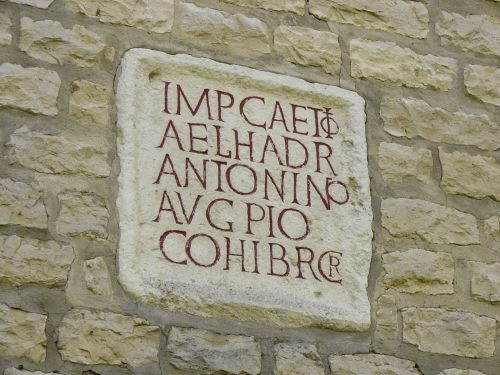 IMPCAETIO
AELHADR
ANTONINO
AVGPIO
COHIBRCR